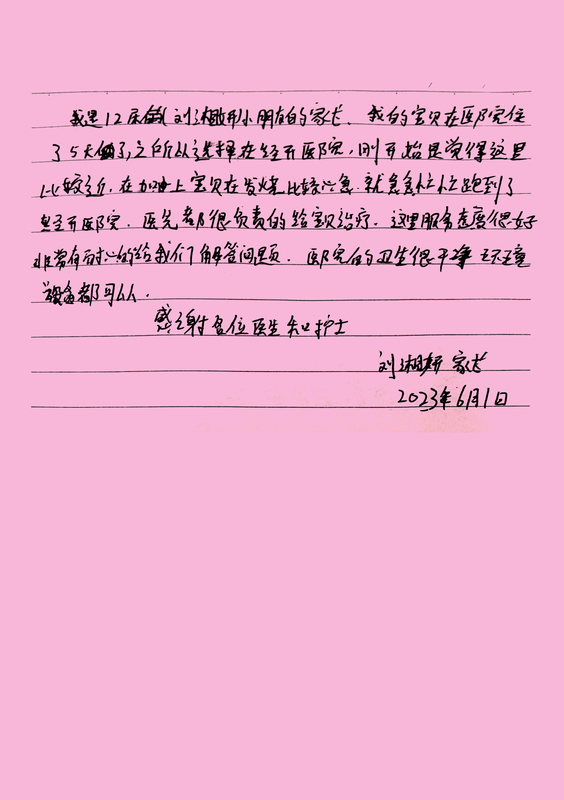 我是12床的刘湘妍小朋友的家长、我的宝贝在医院住
了5天了,之所以选择在经开医院,刚开始是觉得这里
比较近,在加上宝贝在发烧比较着急,就急急忙忙跑到了
经开医院。医生都很负责的给宝贝治疗。这里服务态度很好
非常有耐心的给我们了解答问题。医院的卫生很干净 环境
设备都可以。
感谢各位医生和护士
刘湘妍 家长
2023年6月1日